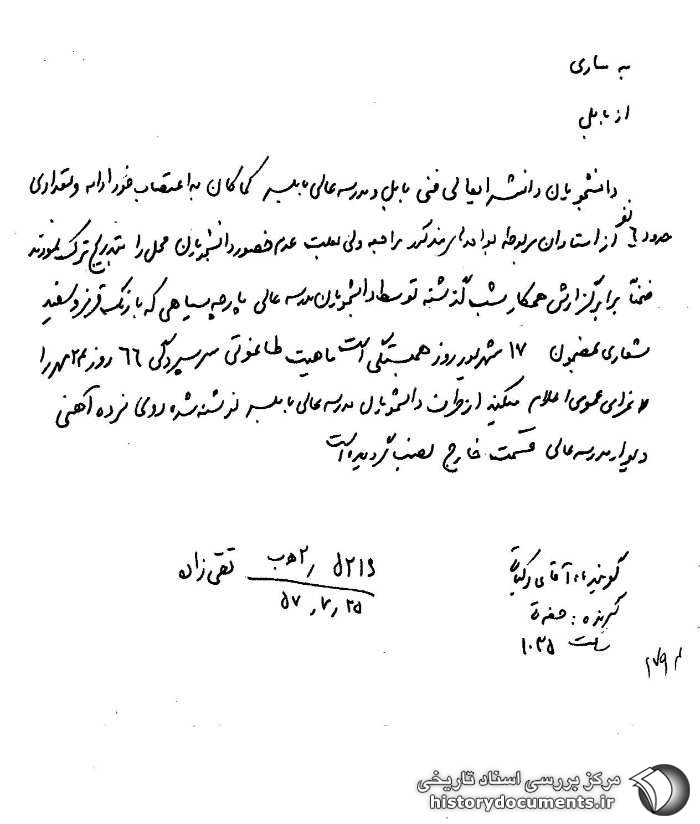 به ساری
از بابل
دانشجویان دانشسرایعالی فنی بابل و مدرسه عالی بابلسر کماکان به اعتصاب خود ادامه و تعدادی
حدود ۶ نفر از استادان مربوطه بدانشکده مراجعه ولی بعلت عدم حضور دانشجویان محل را بتدریج ترک نمودند
ضمناً برابر گزارش همکار شب گذشته توسط دانشجویان مدرسه عالی پارچه سیاهی که با رنگ قرمز و سفید
شعاری بمضمون ۱۷ شهریور روز همبستگی است ماهیت طاغوتی سرسپردگی ۶۶ روز ۲۴ مهر را
عزای عمومی اعلام میکنیم از طرف دانشجویان مدرسه عالی بابلسر نوشته شده روی نرده آهنی
دیوار مدرسه عالی قسمت خارج نصب گردیده است
گوینده: آقای
گیرنده:
ساعت ۱۰۳۵
۵۲۱۶ / ۲ ﻫ ب تقی زاده
۵۷٫۷٫۲۵
مرکز بررسی اسناد تاریخی
historydocuments.ir